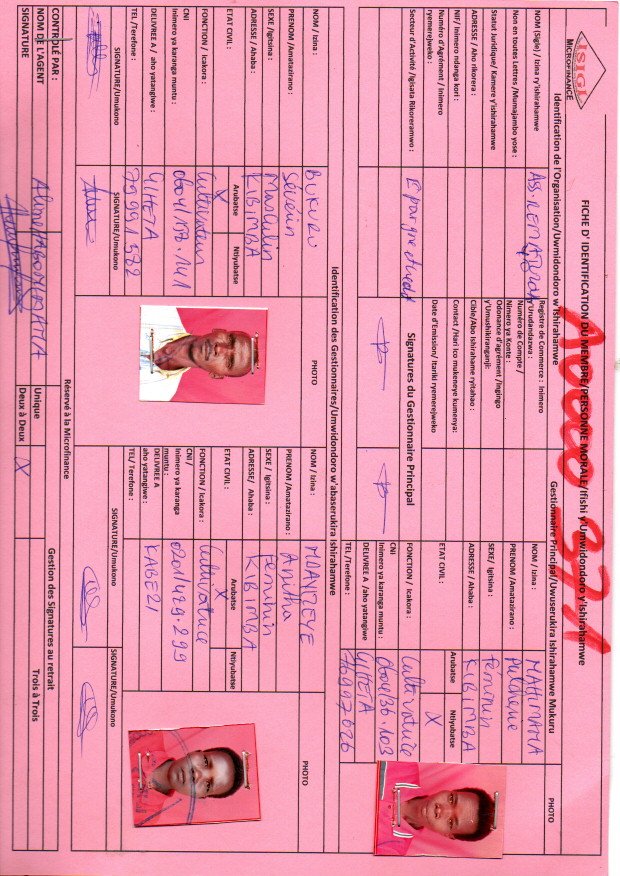 ISIGI
MICROFINANCE
FICHE D' IDENTIFICATION DU MEMBRE/PERSONNE MORALE/Ifishi y'Umwidondoro y'Ishirahamwe
Identification de l'Organisation/Uwmidondoro w'Ishirahamwe
NOM (Sigle) / Izina ry'ishirahamwe
Non en toutes Lettres /Mumajambo yose :
Statut Juridique/ Kamere y'ishirahamwe
ADRESSE / Aho rikorera :
NIF/ Inimero ndanga kori :
Numéro d'Agrément / Inimero
ryemerejweko :
Secteur d'Activité /Igisata Rikoreramwo :
Epargne et crédit
Registre de Commerce : Inimero
y'Urudandazwa :
Numéro de Compte /
Nimero ya Konte :
Odonance d'agrément /Ingingo
y'Umuohikiranganji:
Cible/Abo Ishirahame ryitahao :
Contact /Hari Ico mukeneye kumenya:
Date d'Emission/ Itariki ryemerejweko
Signatures du Gestionnaire Principal
Gestionnaire Principal/Uwuserukira Ishirahamwe Mukuru
PHOTO
NOM / Izina :
PRENOM /Amatazirano :
SEXE/ Igitsina :
Féminin
ADRESSE / Ahaba :
KIBIMBA
ETAT CIVIL :
Arubatse
Ntiyubatse
X
FONCTION / Icakora :
Cultivatrice
CNI
Inimero ya karanga muntu :
DELIVREE A /aho yatangiwe
GIHETA
TEL /Terefone :
Identification des Gestionnaires/Umwidondoro w'abaserukira Ishirahamwe
NOM / Izina :
BUKURU
PRENOM /Amatazirano :
Sévérin
SEXE /Igitsina :
Masculin
ADRESSE / Ahaba :
KIBIMBA
ETAT CIVIL :
Arubatse
Ntiyubatse
X
FONCTION / Icakora :
Cultivateur
CNI/
Inimero ya karanga muntu :
0604/158.141
DELIVRE A / aho yatangiwe :
GIHETA
TEL /Terefone :
79991572
SIGNATURE/Umukono
SIGNATURE/Umukono
PHOTO
NOM / Izina :
PRENOM /Amatazirano :
SEXE / Igitsina :
Féminin
ADRESSE/ Ahaba :
KIBIMBA
ETAT CIVIL :
Arubatse
Ntiyubatse
X
FONCTION / Icakora :
Cultivatrice
CNI /
Inimero ya karanga
muntu :
0201/429.299
DELIVREE A
aho yatangiwe :
KABEZI
TEL/ Terefone :
SIGNATURE/Umukono
SIGNATURE/Umukono
PHOTO
Réservé à la Microfinance
CONTROLÉ PAR :
NOM DE L'AGENT
SIGNATURE
Gestion des Signatures au retrait
Unique
Deux à Deux
X
Trois à Trois